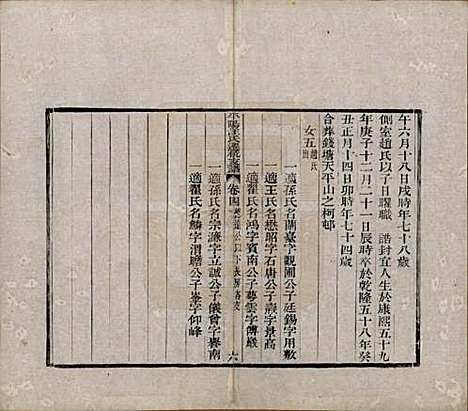 午六月十八日戌時年七十八歲
側室趙氏以子日躍職　誥封宜人生於康熙五十九
年庚子十二月二十一日辰時卒於乾隆五十八年癸
丑正月十四日卯時年七十四歲
合葬錢塘天平山之柯邨
女五趙氏出
一適孫氏名蘭臺字觀圃公子廷錫字用敷
一適王氏名懋昭字石唐公子 字景高
一適翟氏名鴻字賓南公子夢雲字傅巖
平陽汪氏遷杭支譜 卷四 公以下 支
一適孫氏名宗濂字立誠公子儀曾字學南
一適翟氏名麟字渭贍公子 字仰峰
六